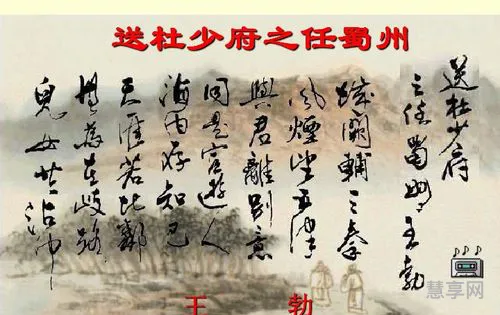 送杜少府之任蜀州
送杜少府
之任蜀州 王勃
城闕輔三秦
风煙望五津
與君離别意
同是宦遊人
海内存知己
天涯若比鄰
無為在歧路
兒女共沾巾
王 勃
慧享网